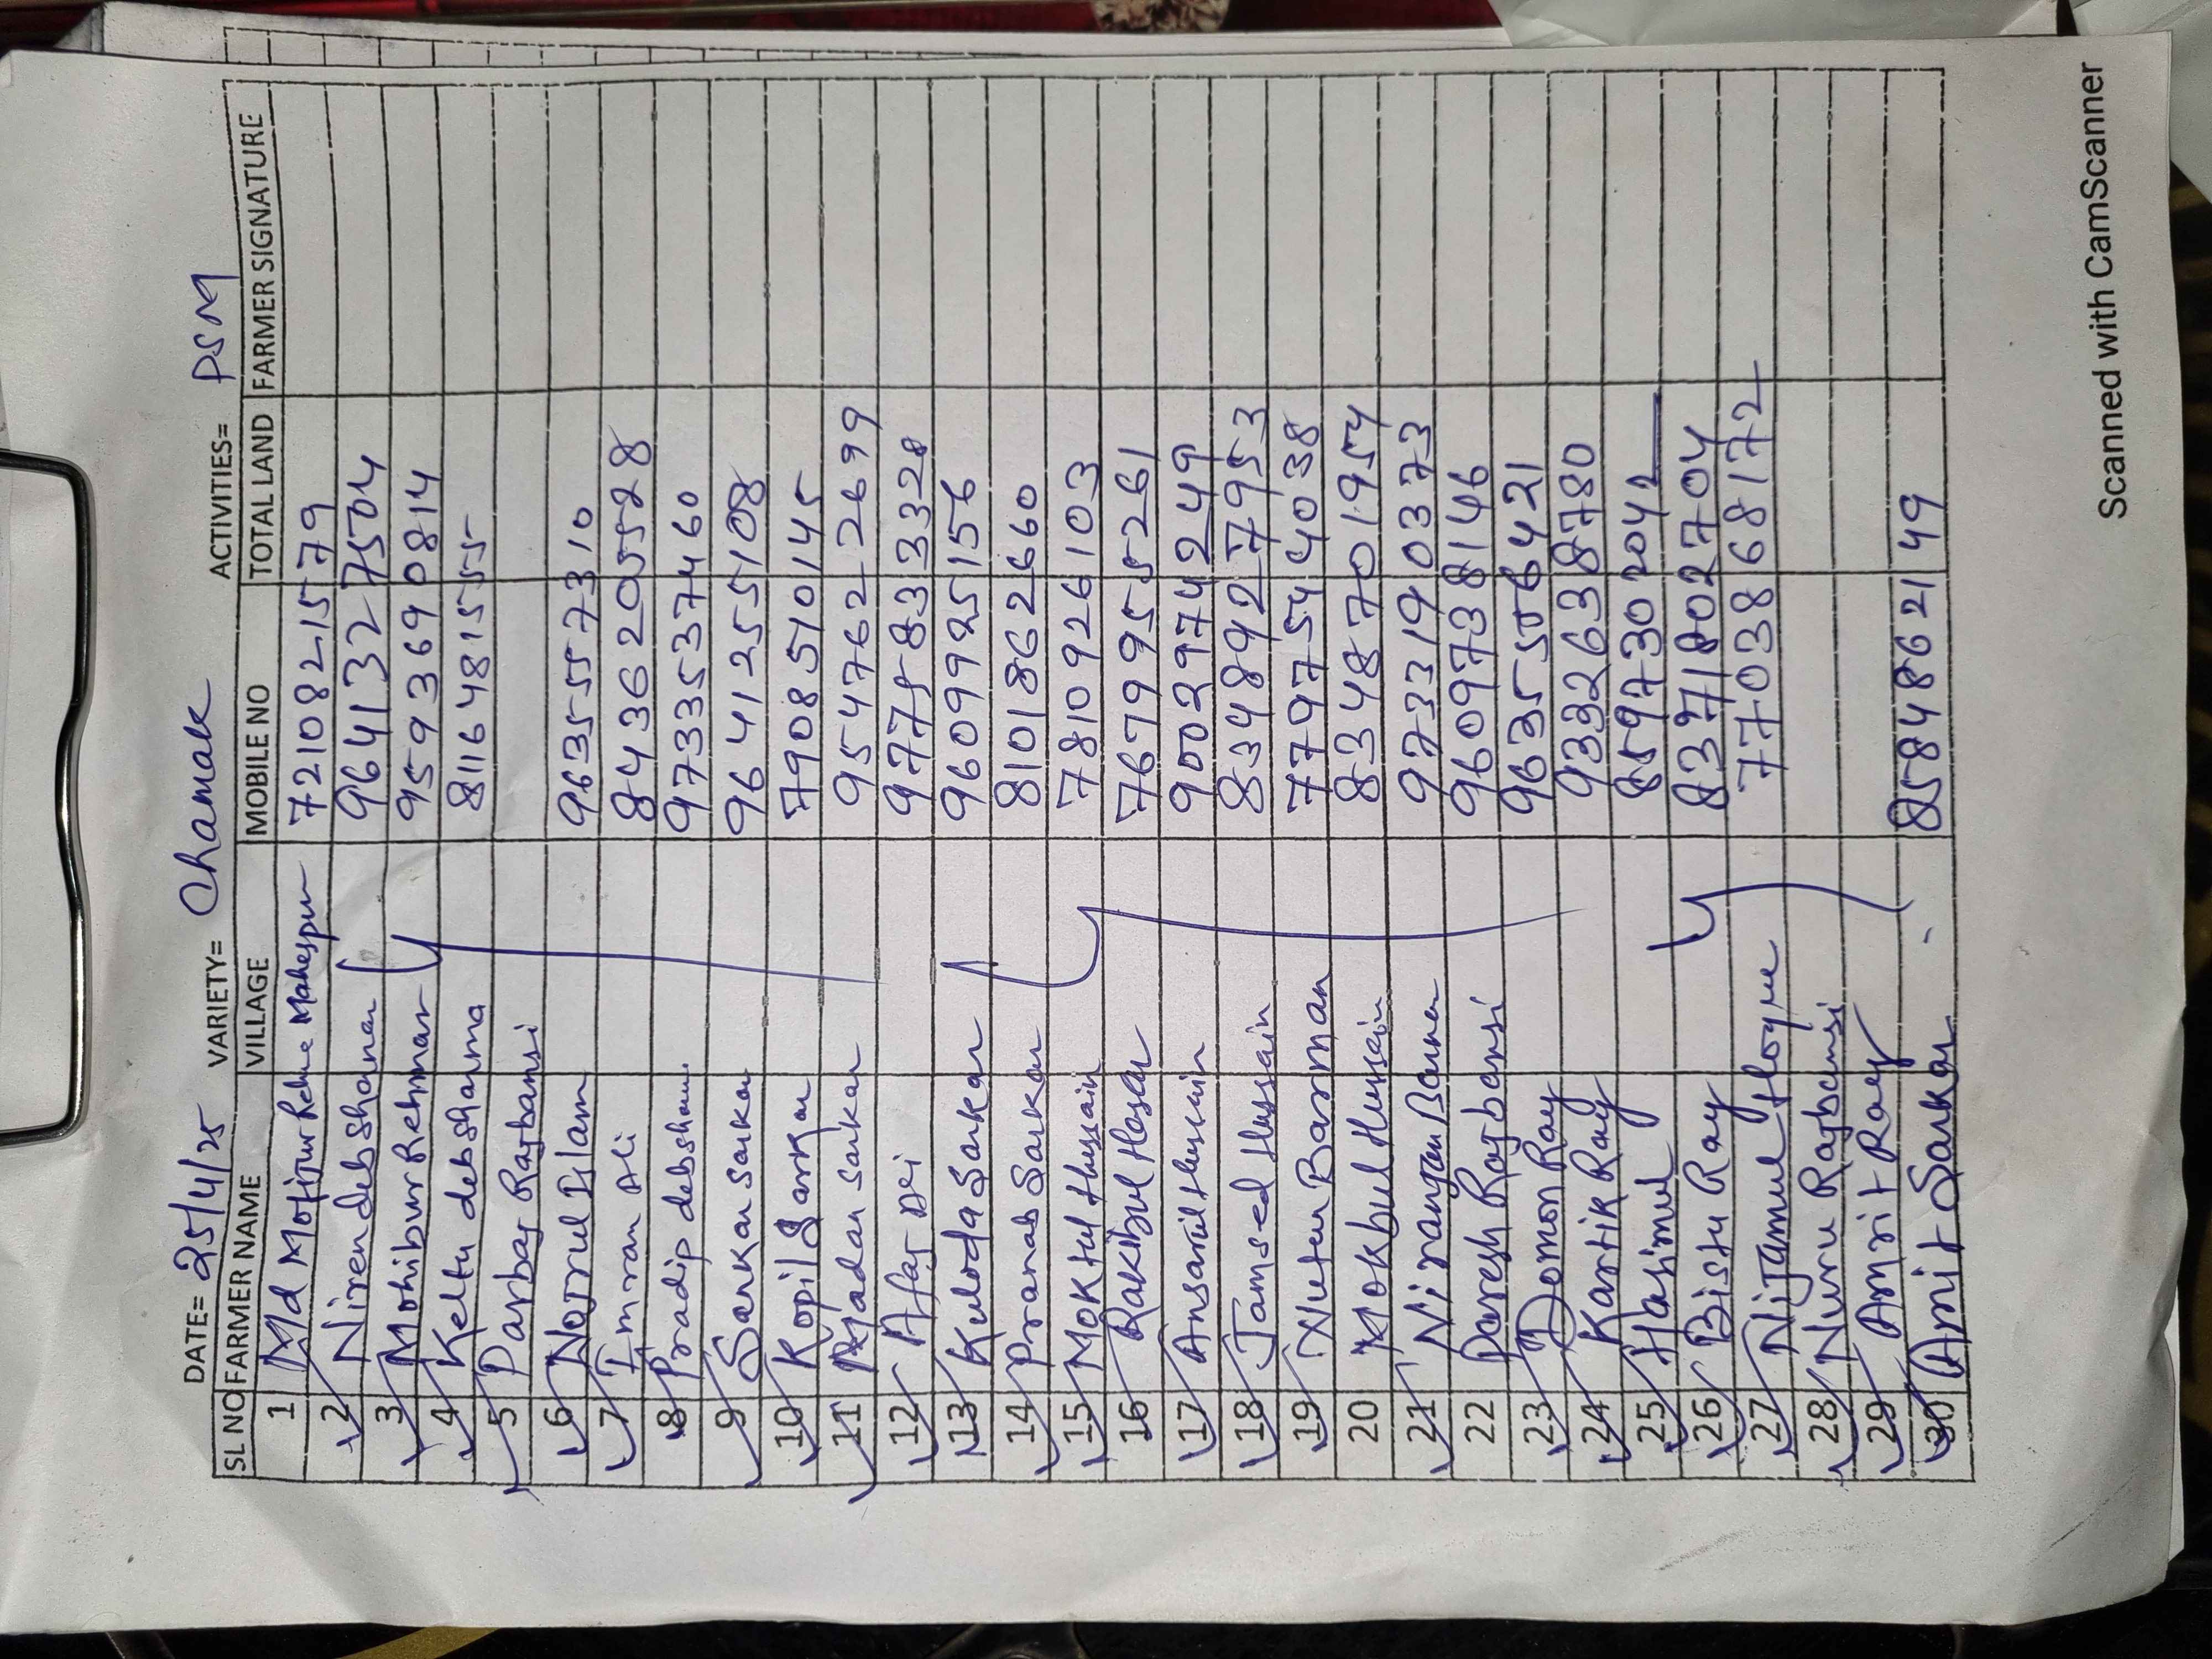 DATE= 25/4/25 VARIETY= Chamak ACTIVITIES= PSM
SL NO FARMER NAME VILLAGE MOBILE NO TOTAL LAND FARMER SIGNATURE
1 Md Motiur Rehme Mahespur 7210821579
2 Niren debsharma 9641327504
3 Mohibur Rehman 9593690814
4 Keltu debsharma 8116481555
5 Parbay Rajbansi
6 Nojrul Islam 9635557310
7 Imran Ali 8436205528
8 Pradip debsharma 9733537460
9 Sankar Sarkar 9641255108
10 Kopil Sarkar 7908510145
11 Madan Sarkar 9547622699
12 Afaj Ali 9775833328
13 Kuloda Sarkar 9609925156
14 Pranab Sarkar 8101862660
15 Moktul Hussain 7810926103
16 Rakibul Hasan 7679955261
17 Ansarul Hussain 9002974249
18 Jamsed Hussain 8348927953
19 Nuten Barman 7797544038
20 Mokbul Hussain 8348701954
21 Niranjan Barman 9733190373
22 Paresh Rajbansi 9609738146
23 Domon Ray 9635556421
24 Kartik Ray 9332638780
25 Hasimul 8597302042
26 Bistu Ray 8371802704
27 Nijamul Hoque 7703868172
28 Nunu Rajbansi
29 Amrit Ray
30 Amit Sarkar 8584862149
Scanned with CamScanner